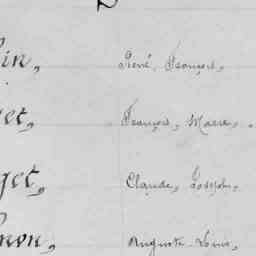 in, René, François,
et, François, Marie,
get, Claude, Joseph,
non, Auguste Louis,